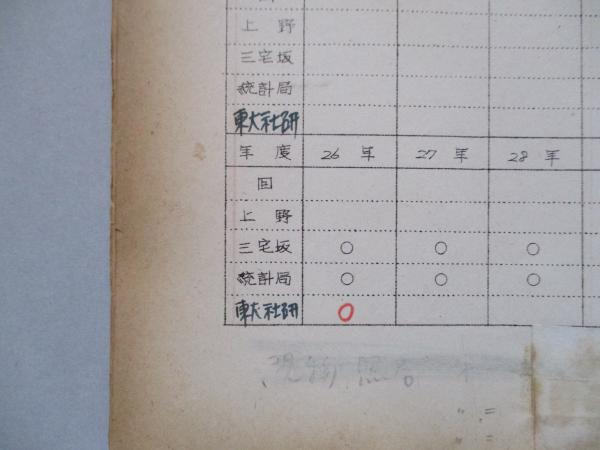 回
上野
三宅坂
統計局
東大社研
年度 26年 27年 28年
回
上野
三宅坂 ○ ○ ○
統計局 ○ ○ ○
東大社研 ○
現物照合
〃 =
〃 =